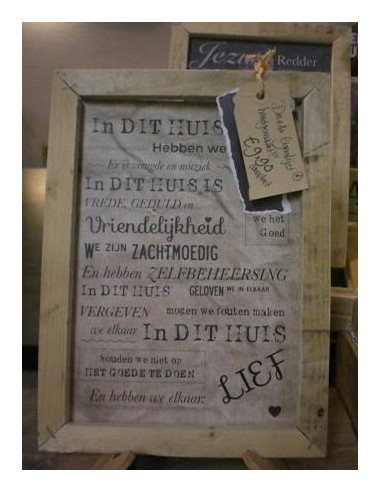 Jezus Redder
In DIT HUIS
Hebben we
Er is vreugde en muziek
In DIT HUIS IS
VREDE, GEDULD en
Vriendelijkheid
we het
Goed
WE ZIJN ZACHTMOEDIG
En hebben ZELFBEHEERSING
In DIT HUIS GELOVEN WE IN ELKAAR
VERGEVEN mogen we fouten maken
we elkaar In DIT HUIS
houden we niet op
HET GOEDE TE DOEN
LIEF
En hebben we elkaar
€9,90